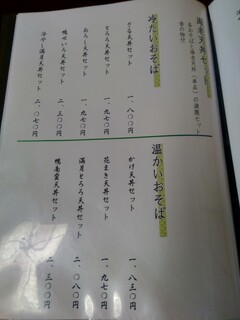 海老天丼セット
各おそばと海老天丼(単品)の満腹セット
冷たいおそば
ざる天丼セット 一、八〇〇円
とろろ天丼セット 一、九七〇円
おろし天丼セット 一、九七〇円
鴨せいろ天丼セット 二、三〇〇円
冷や満月天丼セット 二、〇七〇円
温かいおそば
かけ天丼セット 一、八三〇円
花まき天丼セット 一、九七〇円
満月とろろ天丼セット 二、〇八〇円
鴨南蛮天丼セット 二、三〇〇円